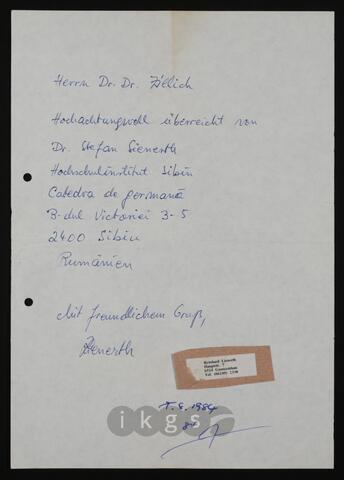 Herrn Dr. Dr. Zillich
Hochachtungsvoll überreicht von
Dr. Stefan Sienerth
Hochschulinstitut Sibiu
Catedra de germană
B-dul Victoriei 3-5
2400 Sibiu
Rumänien
Mit freundlichem Gruß,
Sienerth
Tel.
1984
ikgs